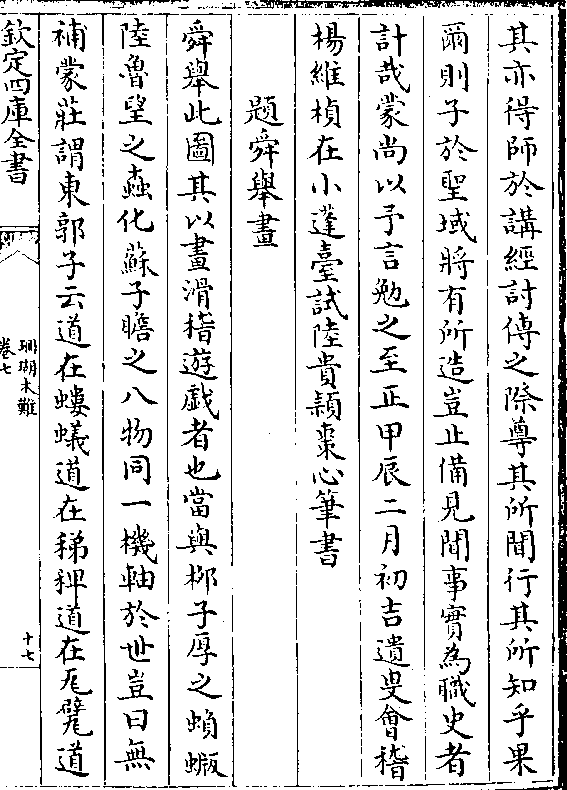 其亦得師於講經討傳之際尊其所聞行其所知乎果
爾則子於聖域將有所造豈止備見聞事實為職史者
計哉蒙尚以予言勉之至正甲辰二月初吉遺叟會稽
楊維楨在小蓬臺試陸貴頴棗心筆書
題舜舉畫
舜舉此圖其以畫滑稽遊戲者也當與栁子厚之蝜蝂
陸魯望之蠧化蘇子瞻之八物同一機軸於世豈曰無
補蒙莊謂東郭子云道在螻蟻道在稊稗道在瓦甓道
欽定四庫全書
珊瑚木難
卷七
十七